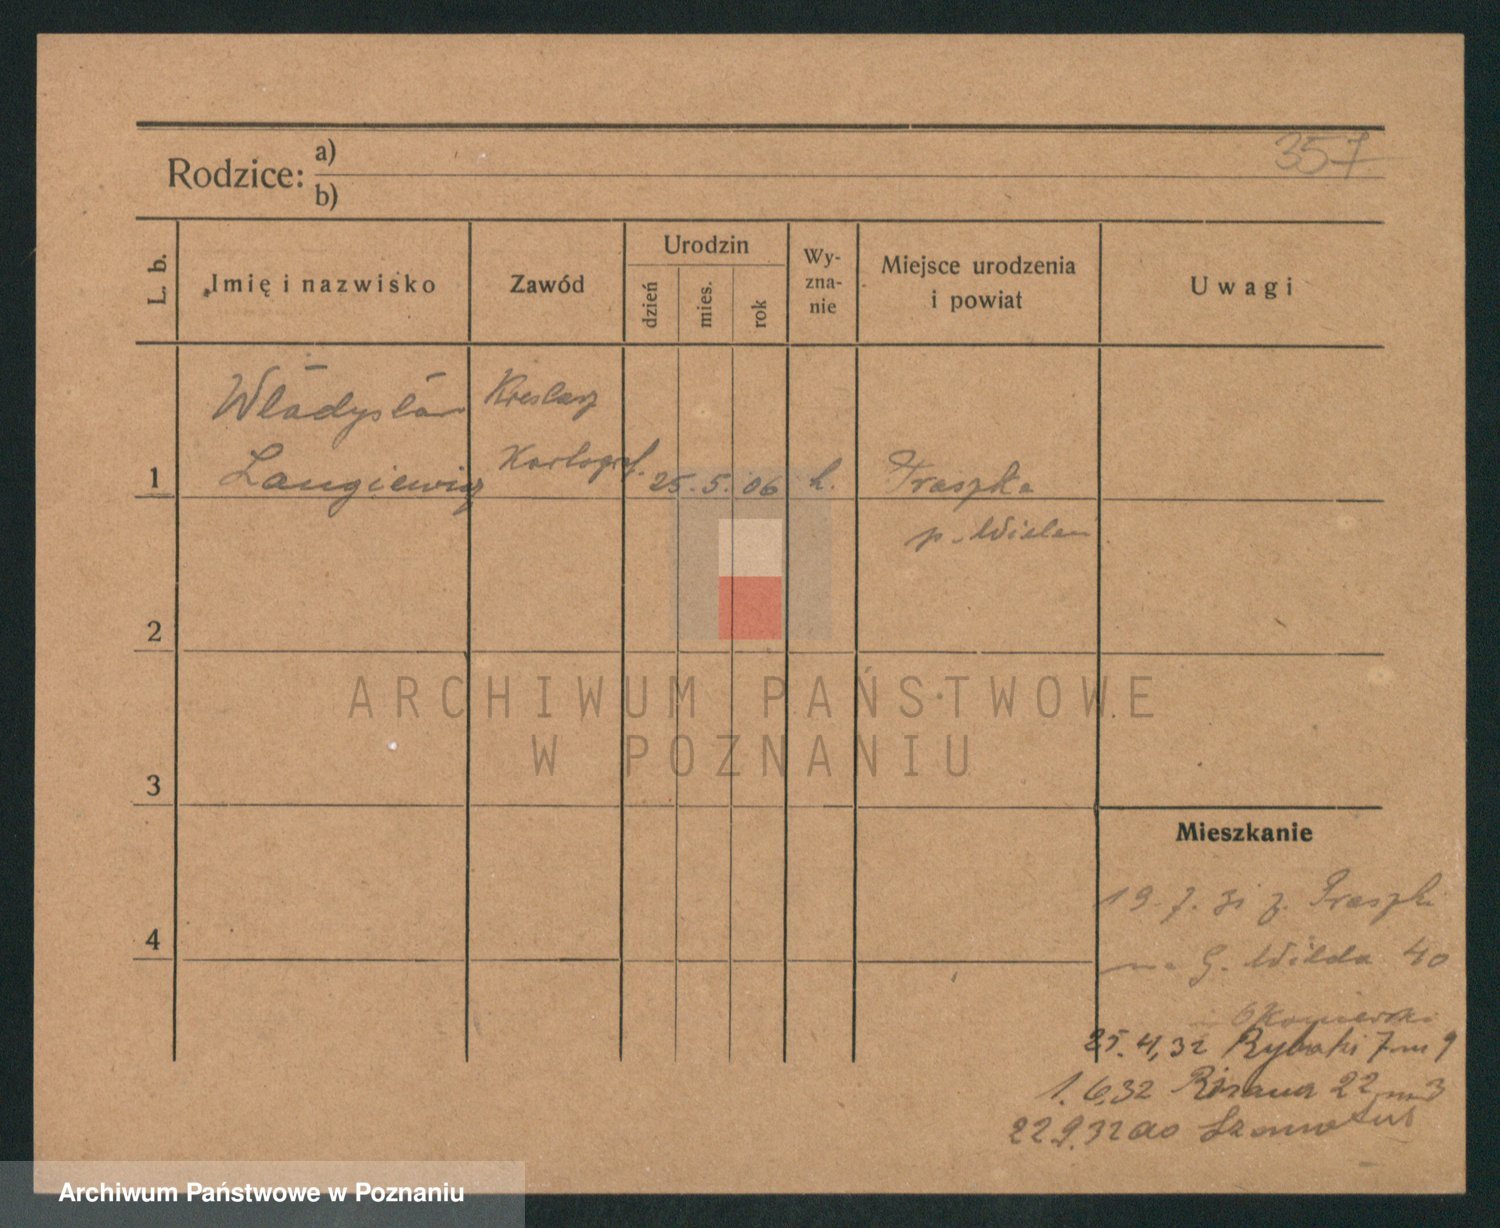 357
Rodzice: a)
b)
L. b.
Imię i nazwisko
Zawód
Urodzin
dzień
mies.
rok
Wy-
zna-
nie
Miejsce urodzenia
i powiat
Uwagi
Władysław
Kreślarz
Langiewicz
Kartograf.
1
25. 5. 06
Praszka
p. Wieluń
2
ARCHIWUM PAŃSTWOWE
W POZNANIU
3
Mieszkanie
19. 7. 31 z. Praszki
4
na G. Wilda 40
25. 4, 32 Rybaki 7 m 9
1. 6, 32 22 m 3
22 9. 32 do Szamotuł
Archiwum Państwowe w Poznaniu